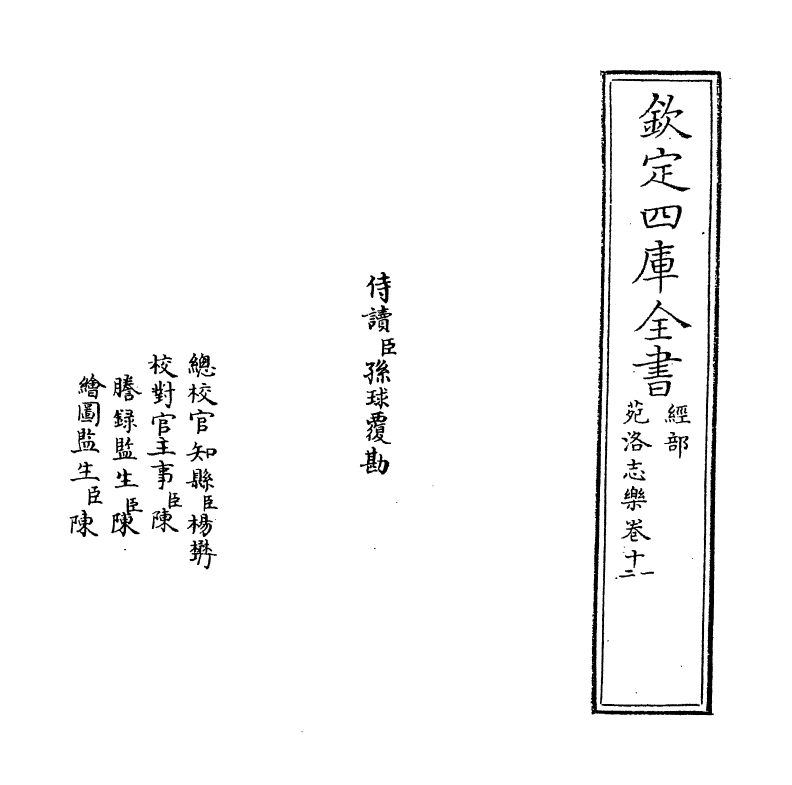 欽定四庫全書
經部
苑洛志樂卷十一二
侍讀臣孫球覆勘
總校官知縣臣楊懋珩
校對官主事臣陳
謄錄監生臣陳
繪圖監生臣陳